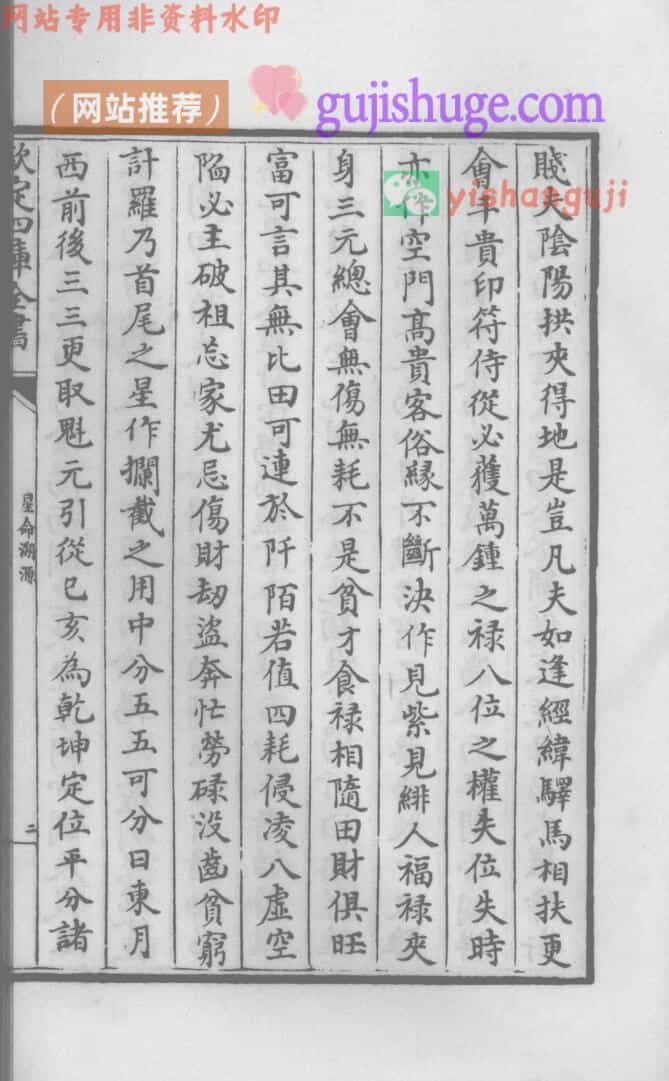 网站专用非资料水印
(网站推荐)
gujishuge.com
yishanguji
賤夫陰陽拱夾得地是豈凡夫如逢經緯驛馬相扶更
會本貴印符侍從必獲萬鍾之禄八位之權失位失時
亦作空門髙貴客俗縁不斷決作見紫見緋人福禄夾
身三元總會無傷無耗不是貧才食禄相隨田財俱旺
富可言其無比田可連於阡陌若值四耗侵凌八虚空
陥必主破祖忘家尤忌傷財刼盜奔忙勞碌没齒貧窮
計羅乃首尾之星作攔截之用中分五五可分日東月
西前後三三更取魁元引從巳亥為乾坤定位平分諸
欽定四庫全書
星命溯源
二